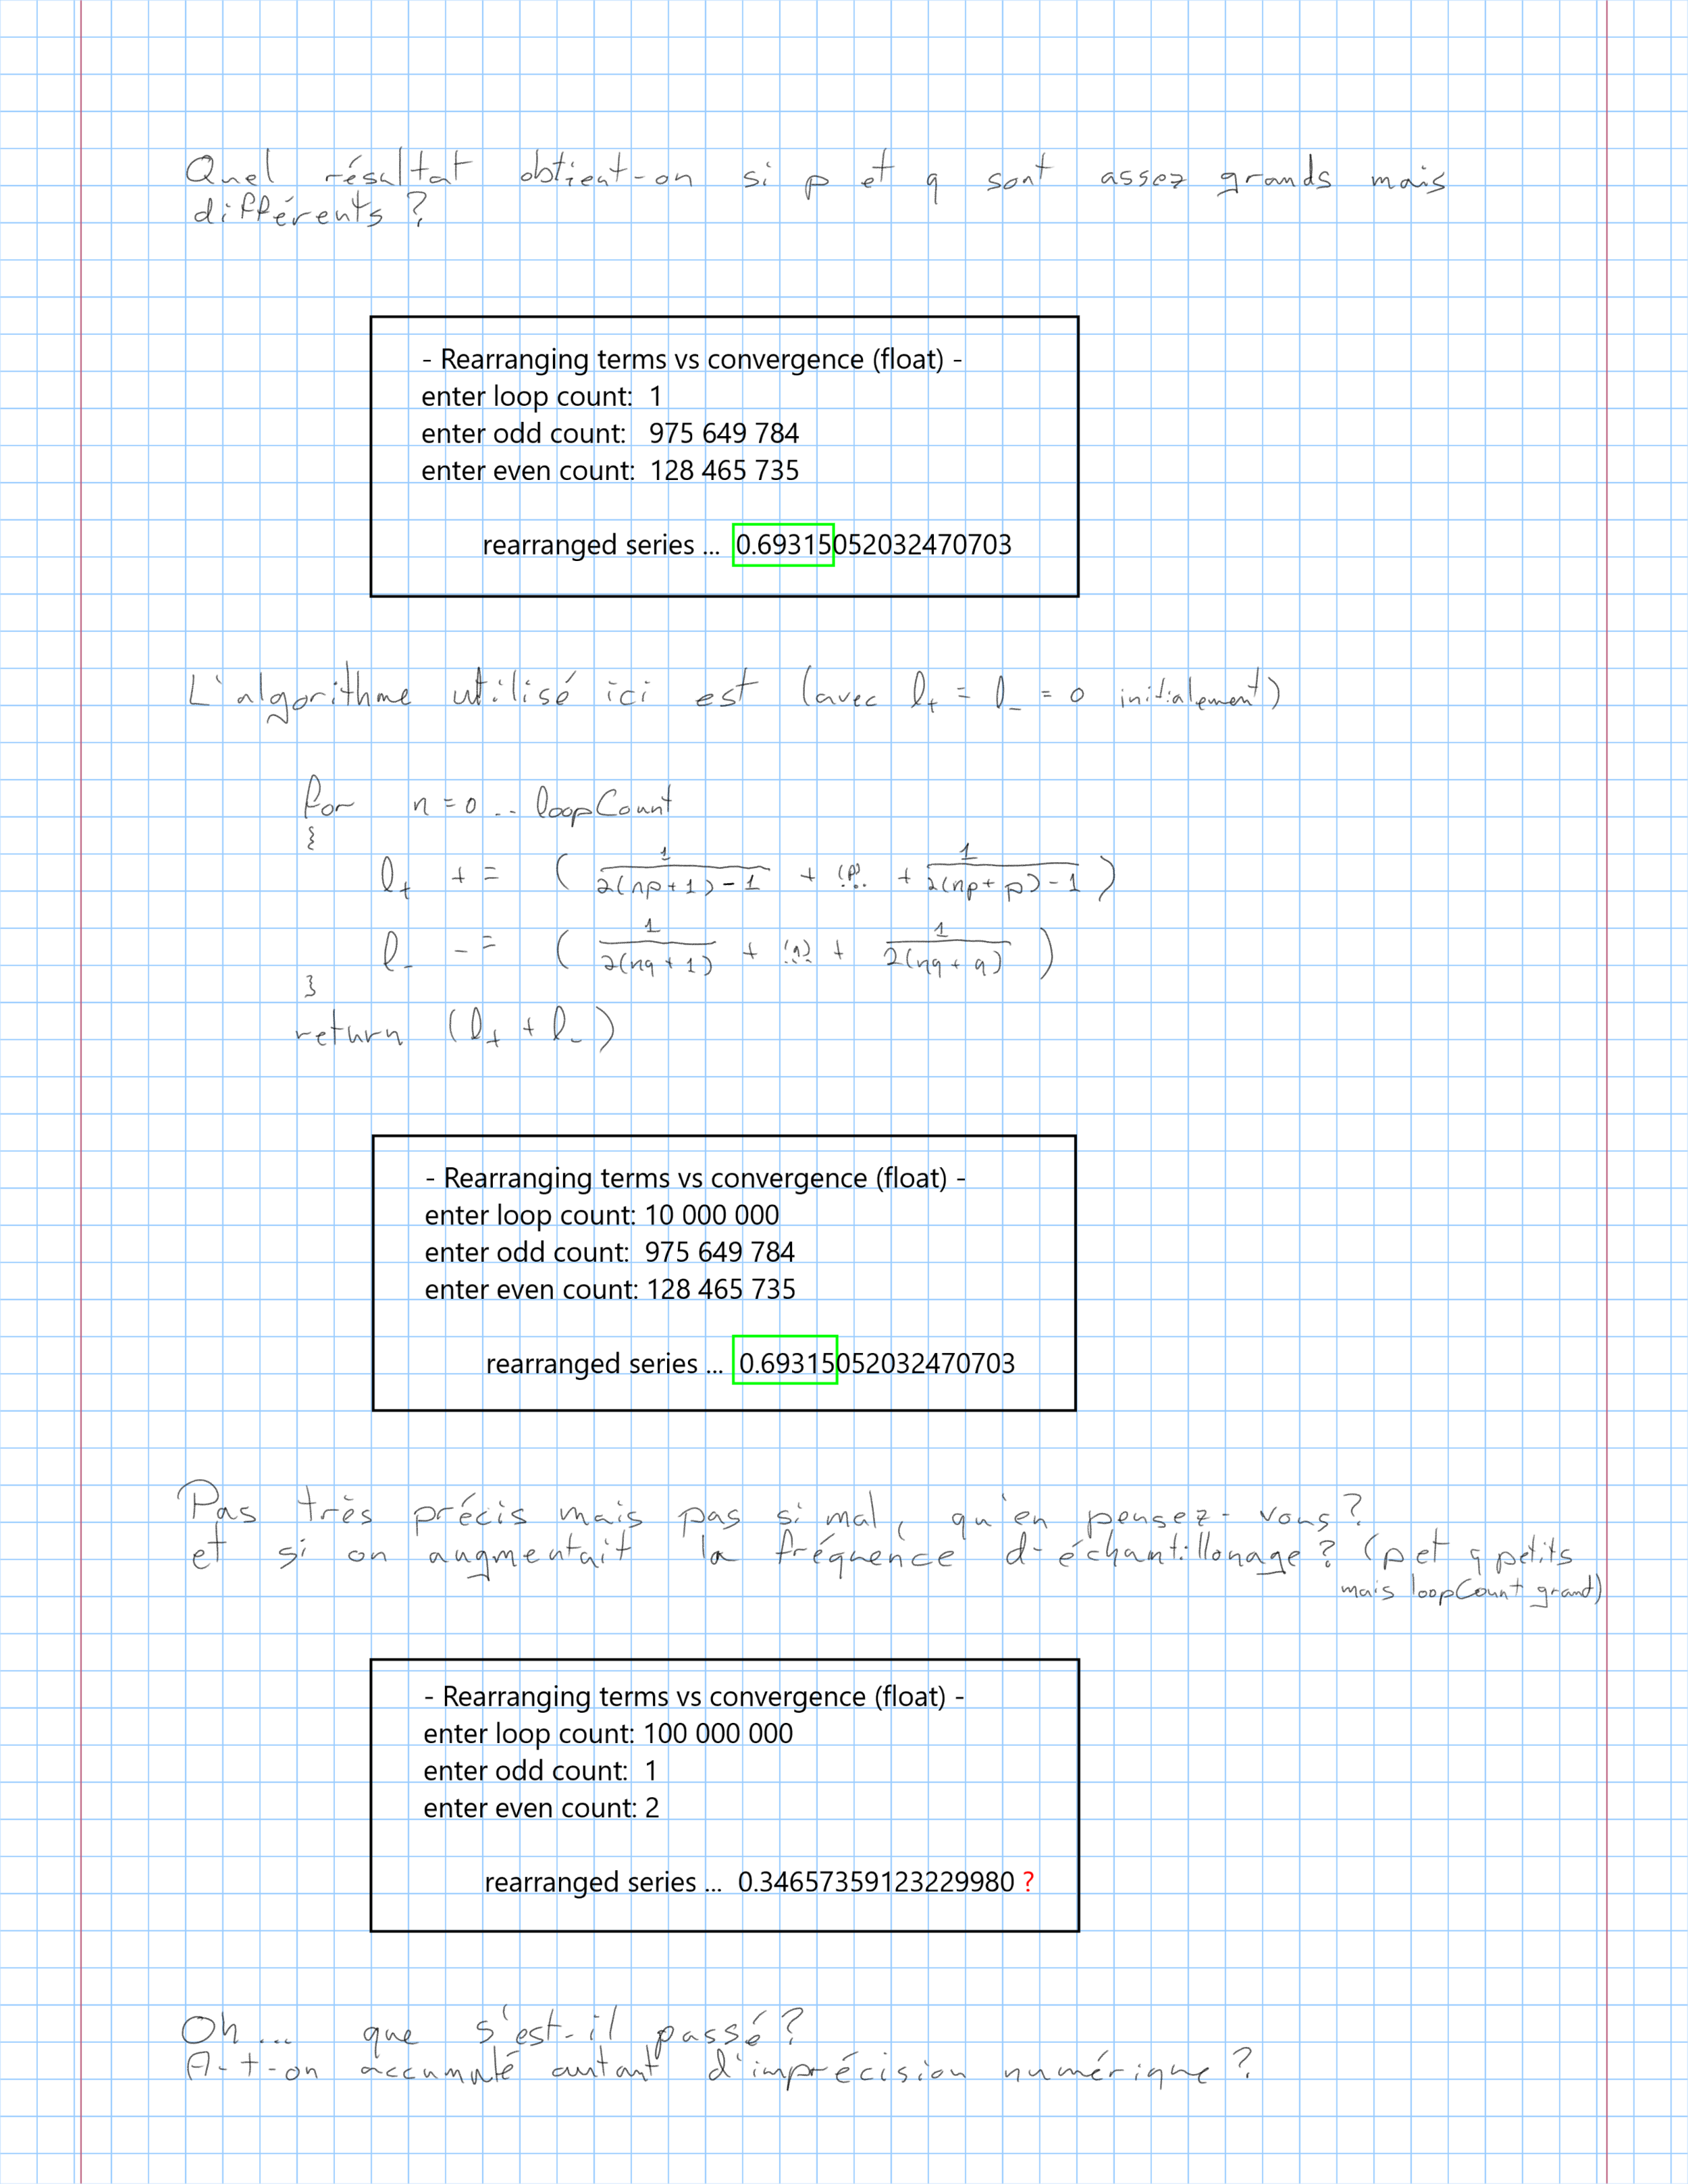 Quel résultat obtient-on si p et q sont assez grands mais
différents ?
- Rearranging terms vs convergence (float) -
enter loop count: 1
enter odd count: 975 649 784
enter even count: 128 465 735
rearranged series ... 0.69315052032470703
L'algorithme utilisé ici est (avec l₊ = l₋ = 0 initialement)
for n = 0 .. loopCount
{
l₊ += ( 1/(2(np+1)-1) + (p)... + 1/(2(np+p)-1) )
l₋ -= ( 1/(2(nq+1)) + (q)... + 1/(2(nq+q)) )
}
return (l₊ + l₋)
- Rearranging terms vs convergence (float) -
enter loop count: 10 000 000
enter odd count: 975 649 784
enter even count: 128 465 735
rearranged series ... 0.69315052032470703
Pas très précis mais pas si mal, qu'en pensez-vous ?
et si on augmentait la fréquence d-échantillonage ? (p et q petits
mais loopCount grand)
- Rearranging terms vs convergence (float) -
enter loop count: 100 000 000
enter odd count: 1
enter even count: 2
rearranged series ... 0.34657359123229980 ?
Oh... que s'est-il passé ?
A-t-on accumulé autant d'imprécision numérique ?